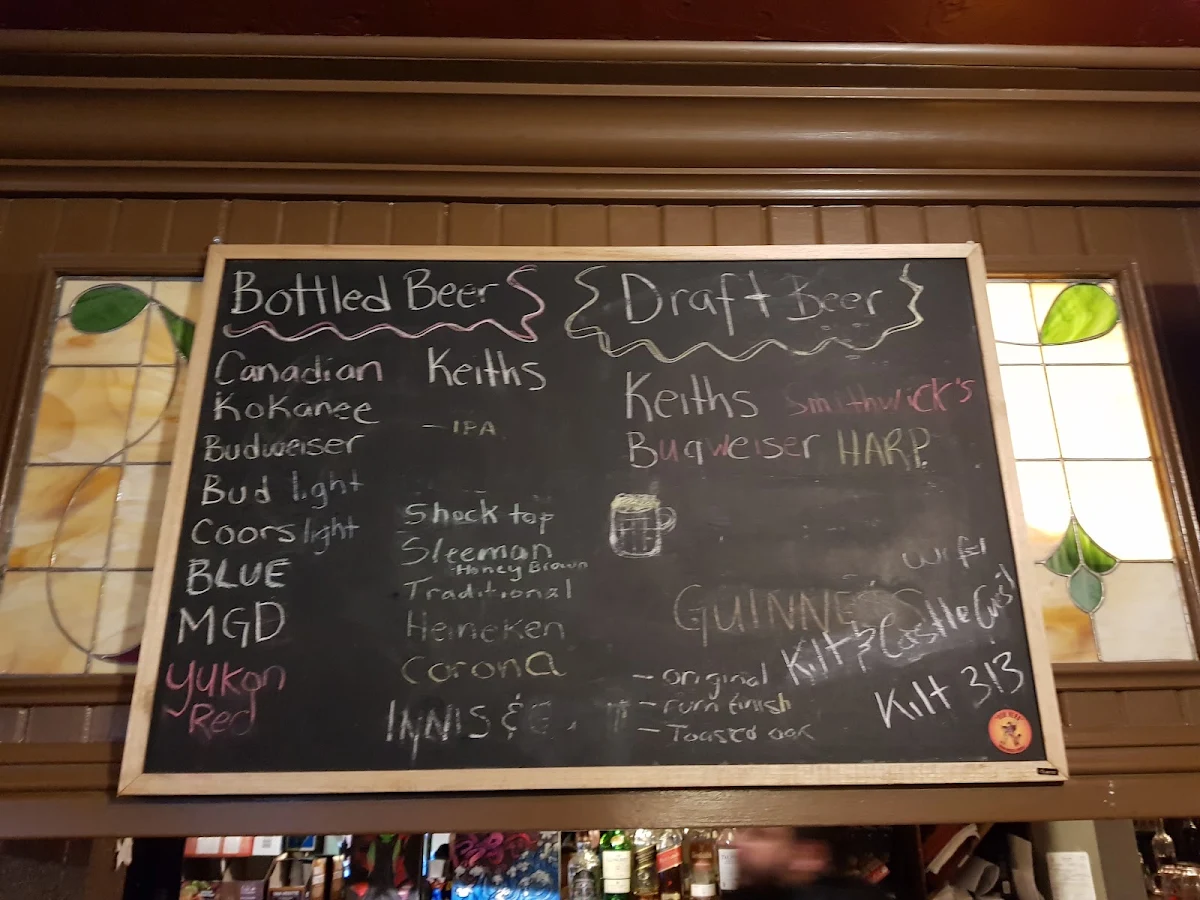 Bottled Beer
Canadian
Kokanee
Budweiser
Bud light
Coors light
BLUE
MGD
Yukon
Red
Keiths
- IPA
Shock top
Sleeman
- Honey Brown
Traditional
Heineken
Corona
INNIS &
- original
- rum finish
- Toasted oak
Draft Beer
Keiths Smithwick's
Buqweiser HARP
GUINNESS
wifi
Kilt & Castle
Kilt 313